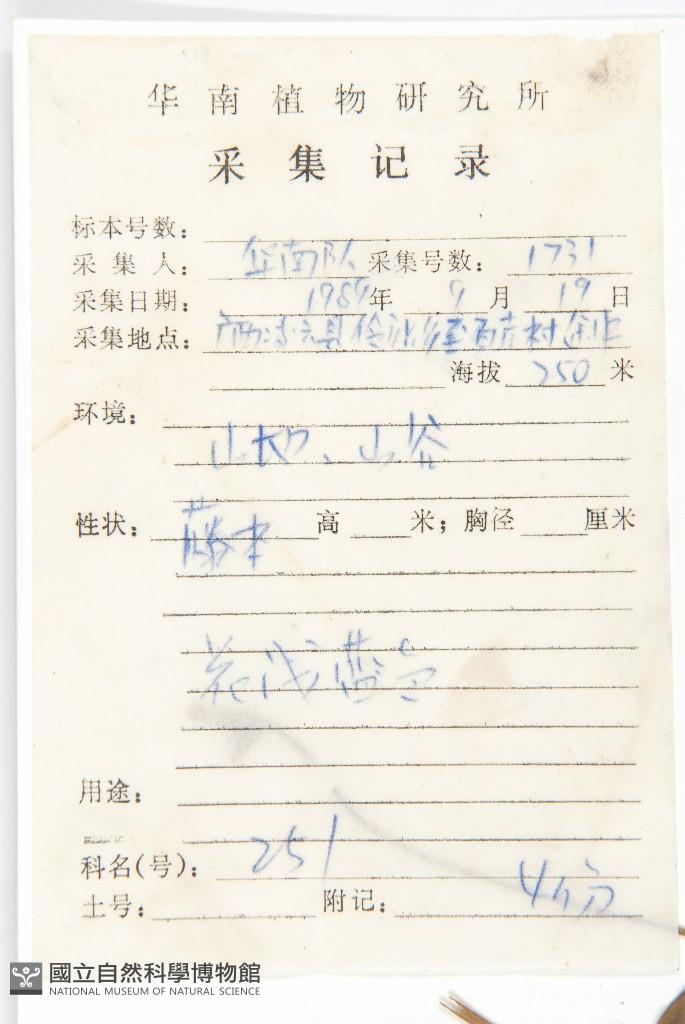 华南植物研究所
采集记录
标本号数：
采集人： 华南队 采集号数： 1731
采集日期： 1989年 9月 19日
采集地点： 广西凌云县伶站乡 村
海拔 750 米
环境：
山地、山谷
性状： 藤本 高 米；胸径 厘米
花浅蓝色
用途：
科名(号)： 251
土号： 附记： 4份
國立自然科學博物館
NATIONAL MUSEUM OF NATURAL SCIENCE